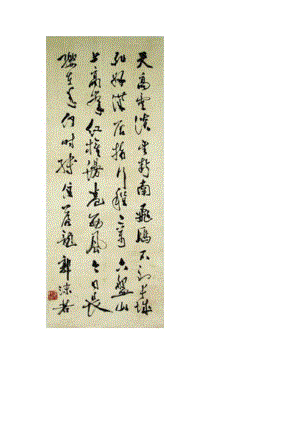 天高雲淡望斷南飛雁不到長城
非好漢屈指行程二萬六盤山
上高峯紅旗漫卷西風今日長
纓在手何時縛住蒼龍 郭沫若